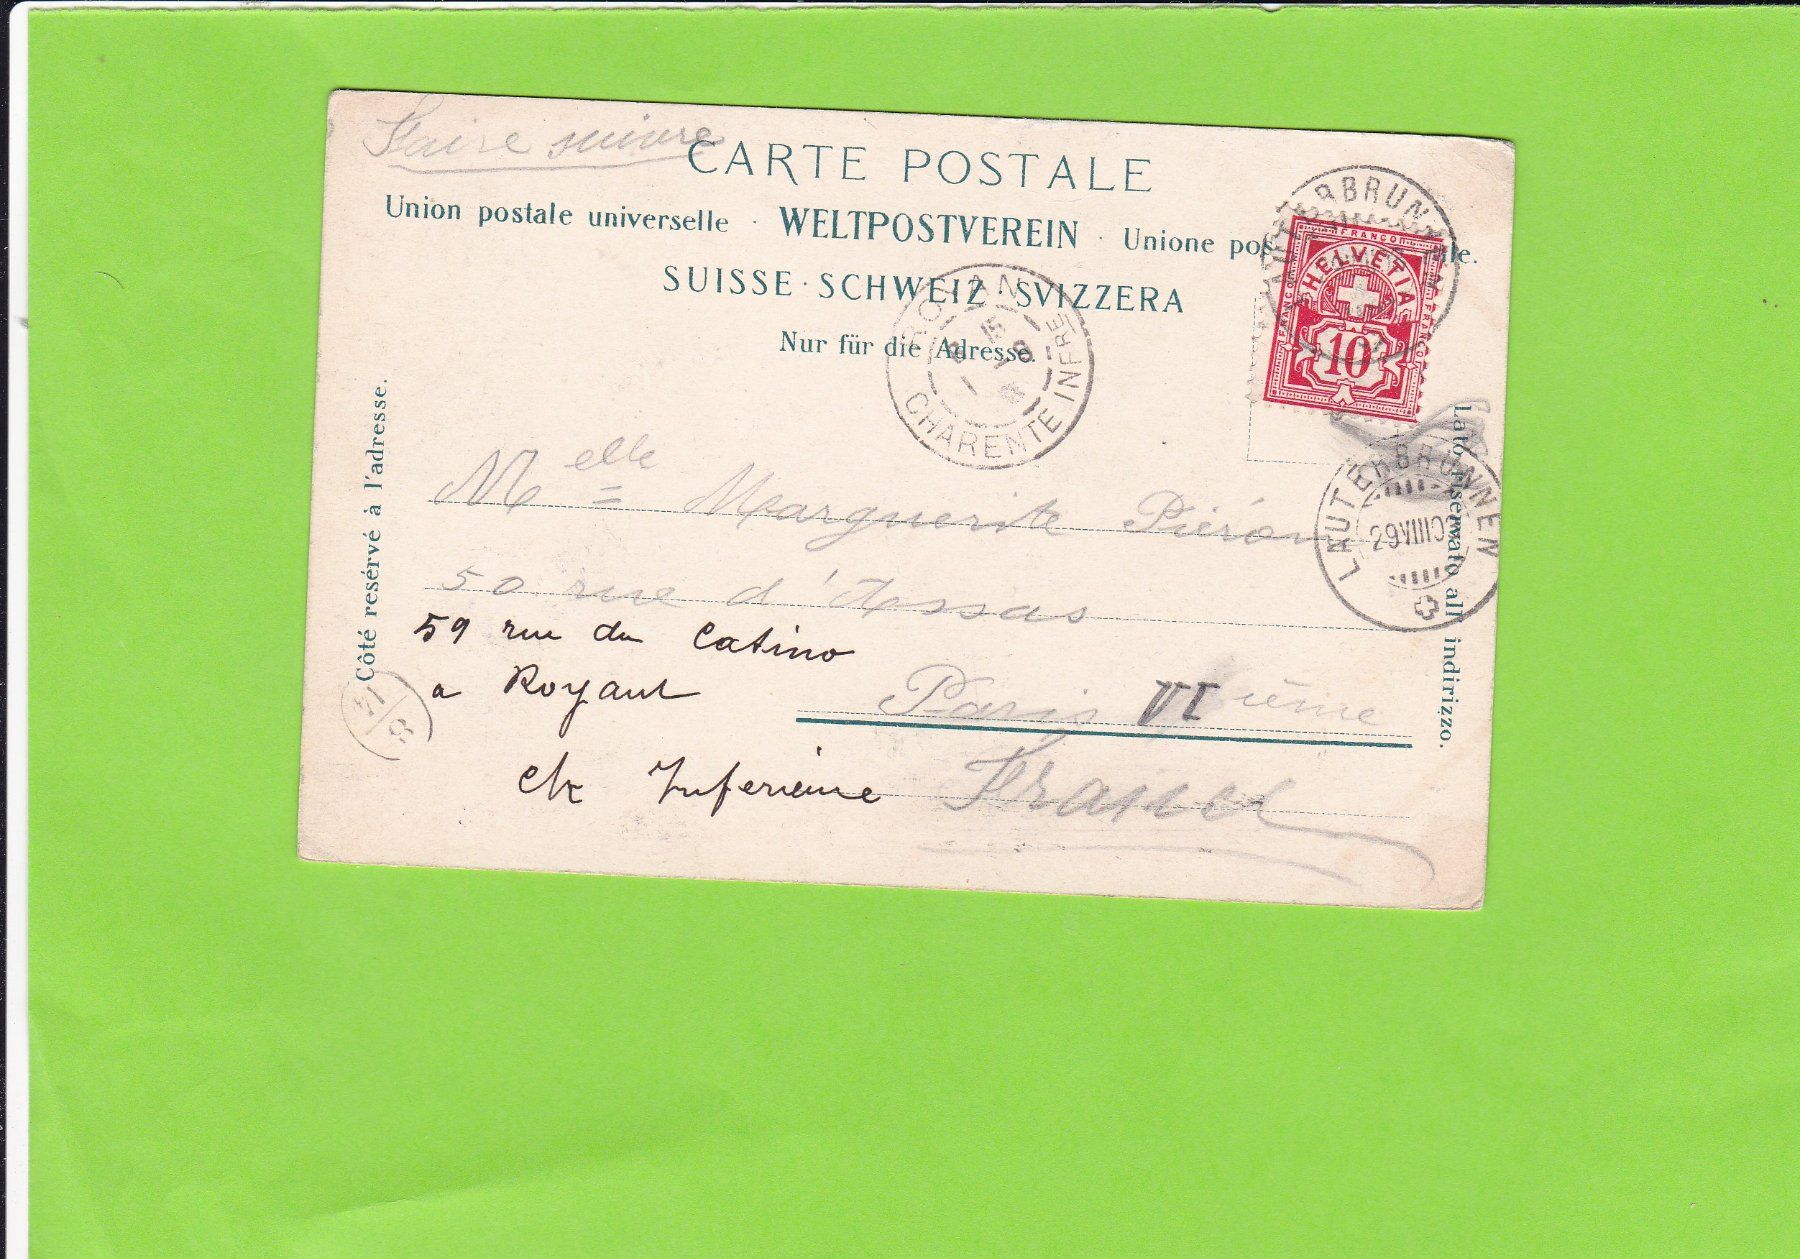 Faire suivre
CARTE POSTALE
Union postale universelle · WELTPOSTVEREIN · Unione pos le.
SUISSE · SCHWEIZ · SVIZZERA
Nur für die Adresse.
Côté resérvé à l'adresse.
Lato riservato all indirizzo.
FRANCO
HELVETIA
10
LAUTERBRUNNEN
LAUTERBRUNNEN
29 VIII 0
ROYAN
CHARENTE INFRE
Melle Marguerite Piéron
50 rue d'Assas
59 rue du Casino
a Royant
Paris VI ième
Che Inferieure France
14
8